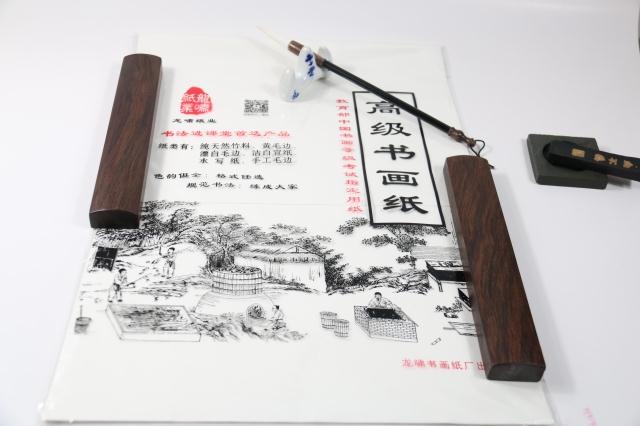 龍嘯
紙業
龙啸纸业
书法选课堂首选产品
纸类有：纯天然竹料、黄毛边、
漂白毛边、洁白宣纸
水写纸、手工毛边、
色韵俱全：格式任选
规范书法：练成大家
高级书画纸
教育部中国书画等级考试指定用纸
龙啸书画纸厂出